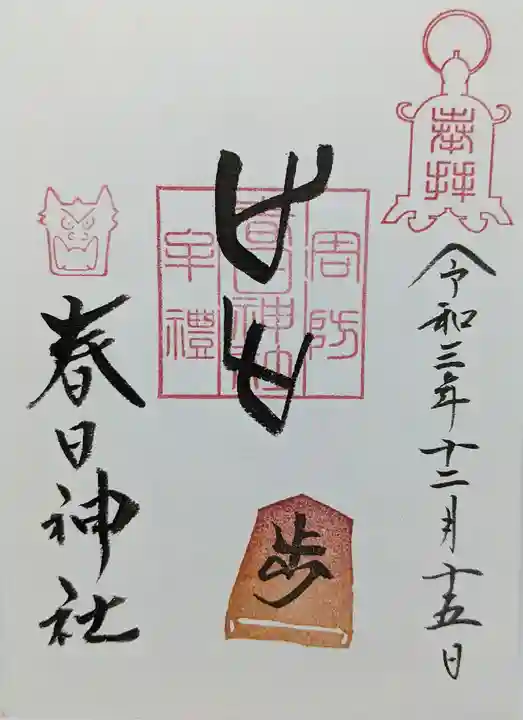 奉拝
令和三年十二月十五日
周防
春日神社
牟禮
歩
春日神社